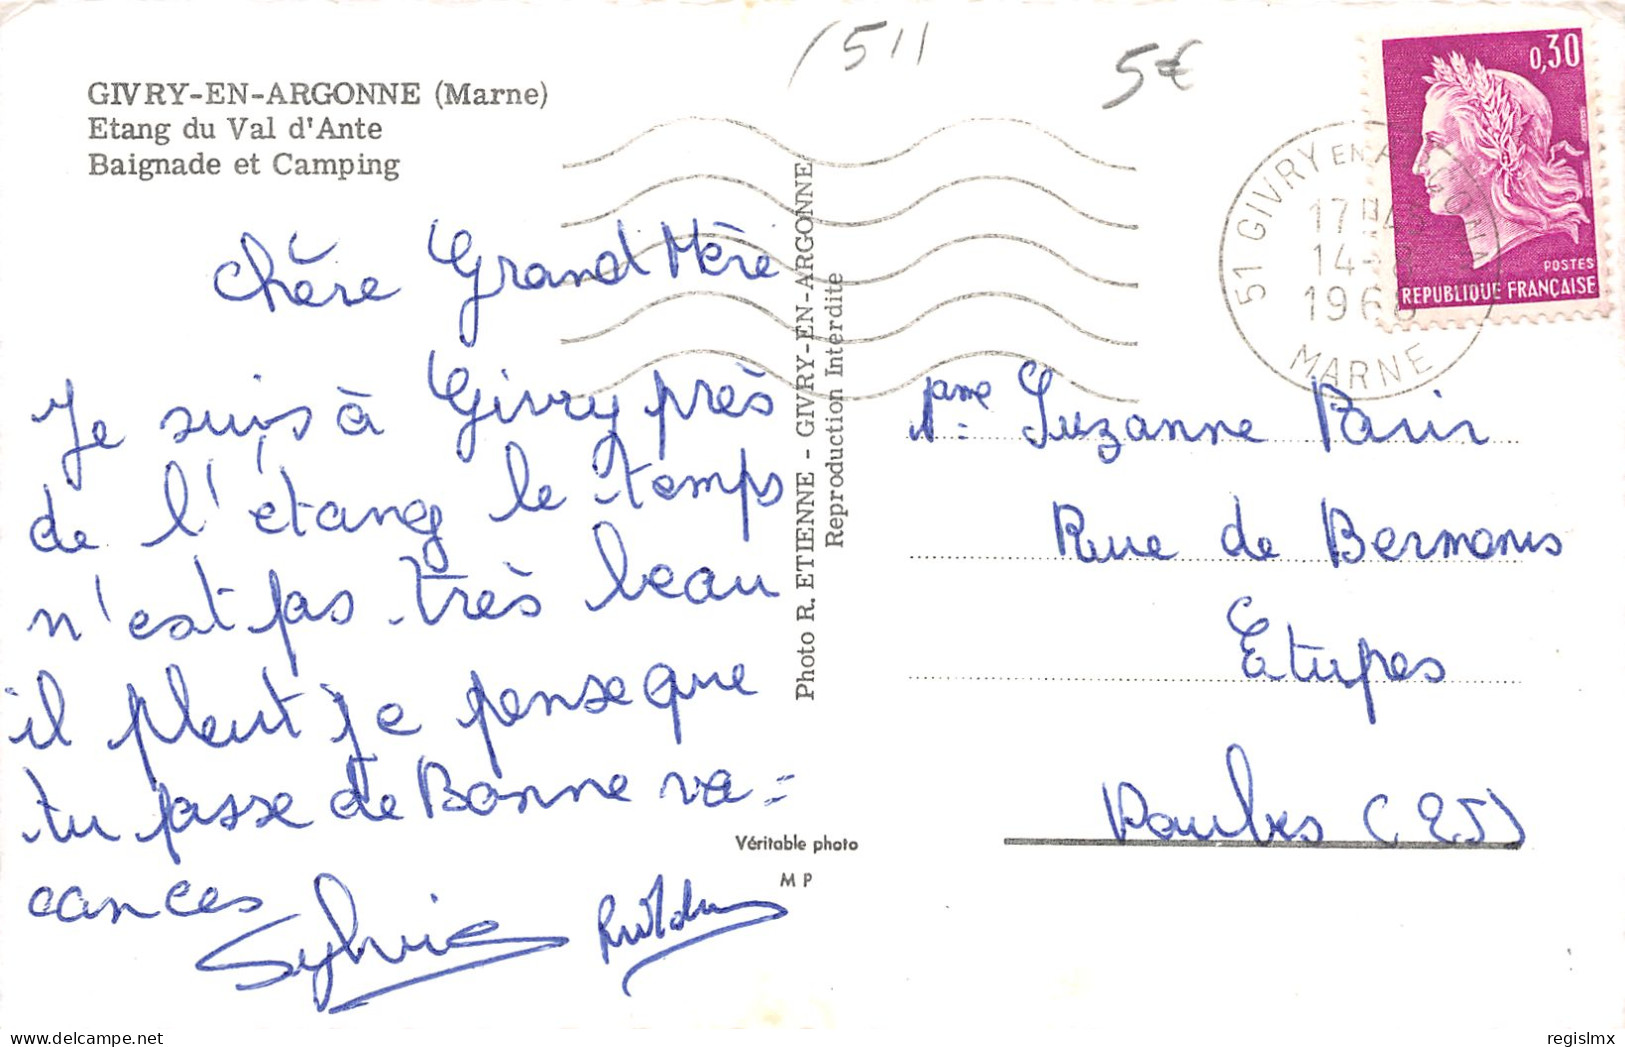 (511
5€
GIVRY-EN-ARGONNE (Marne)
Etang du Val d'Ante
Baignade et Camping
0,30
POSTES
REPUBLIQUE FRANÇAISE
51 GIVRY EN ARGONNE
17H
14-8
196
MARNE
Chère Grand Mère
Je suis à Givry près
de l'étang le temps
n'est pas très beau
il pleut je pense que
tu passe de Bonne va=
cances
Sylvie
Photo R. ETIENNE - GIVRY-EN-ARGONNE
Reproduction Interdite
Véritable photo
MP
Mme Suzanne Paris
Rue de
Etupes
Doubs (25)
delcampe.net
regislmx